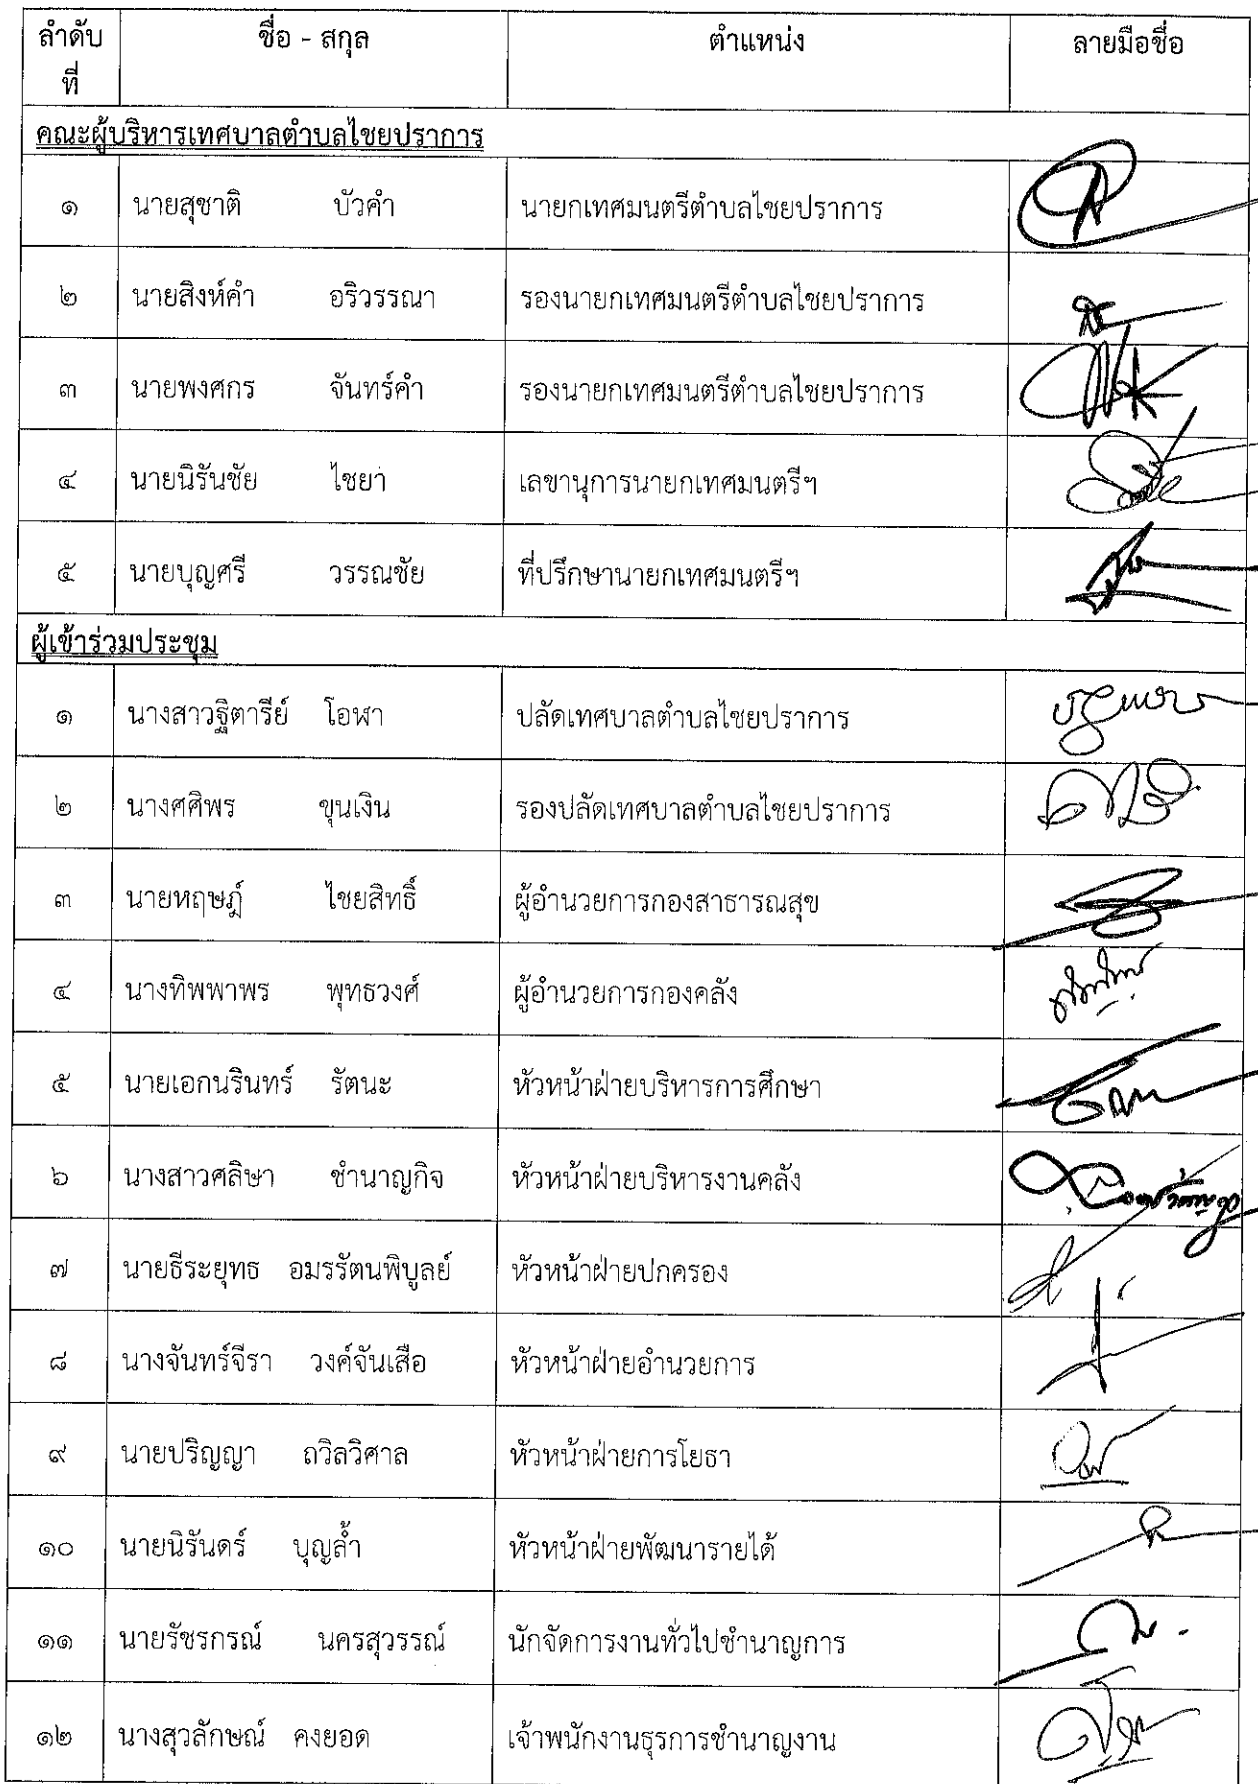 ลำดับที่ ชื่อ - สกุล ตำแหน่ง ลายมือชื่อ
คณะผู้บริหารเทศบาลตำบลไชยปราการ
๑ นายสุชาติ บัวคำ นายกเทศมนตรีตำบลไชยปราการ
๒ นายสิงห์คำ อริวรรณา รองนายกเทศมนตรีตำบลไชยปราการ
๓ นายพงศกร จันทร์คำ รองนายกเทศมนตรีตำบลไชยปราการ
๔ นายนิรันชัย ไชยา เลขานุการนายกเทศมนตรีฯ
๕ นายบุญศรี วรรณชัย ที่ปรึกษานายกเทศมนตรีฯ
ผู้เข้าร่วมประชุม
๑ นางสาวฐิตารีย์ โอฬา ปลัดเทศบาลตำบลไชยปราการ
๒ นางศศิพร ขุนเงิน รองปลัดเทศบาลตำบลไชยปราการ
๓ นายหฤษฎ์ ไชยสิทธิ์ ผู้อำนวยการกองสาธารณสุข
๔ นางทิพพาพร พุทธวงศ์ ผู้อำนวยการกองคลัง
๕ นายเอกนรินทร์ รัตนะ หัวหน้าฝ่ายบริหารการศึกษา
๖ นางสาวศลิษา ชำนาญกิจ หัวหน้าฝ่ายบริหารงานคลัง
๗ นายธีระยุทธ อมรรัตนพิบูลย์ หัวหน้าฝ่ายปกครอง
๘ นางจันทร์จีรา วงค์จันเสือ หัวหน้าฝ่ายอำนวยการ
๙ นายปริญญา ถวิลวิศาล หัวหน้าฝ่ายการโยธา
๑๐ นายนิรันดร์ บุญล้ำ หัวหน้าฝ่ายพัฒนารายได้
๑๑ นายรัชรกรณ์ นครสุวรรณ์ นักจัดการงานทั่วไปชำนาญการ
๑๒ นางสุวลักษณ์ คงยอด เจ้าพนักงานธุรการชำนาญงาน